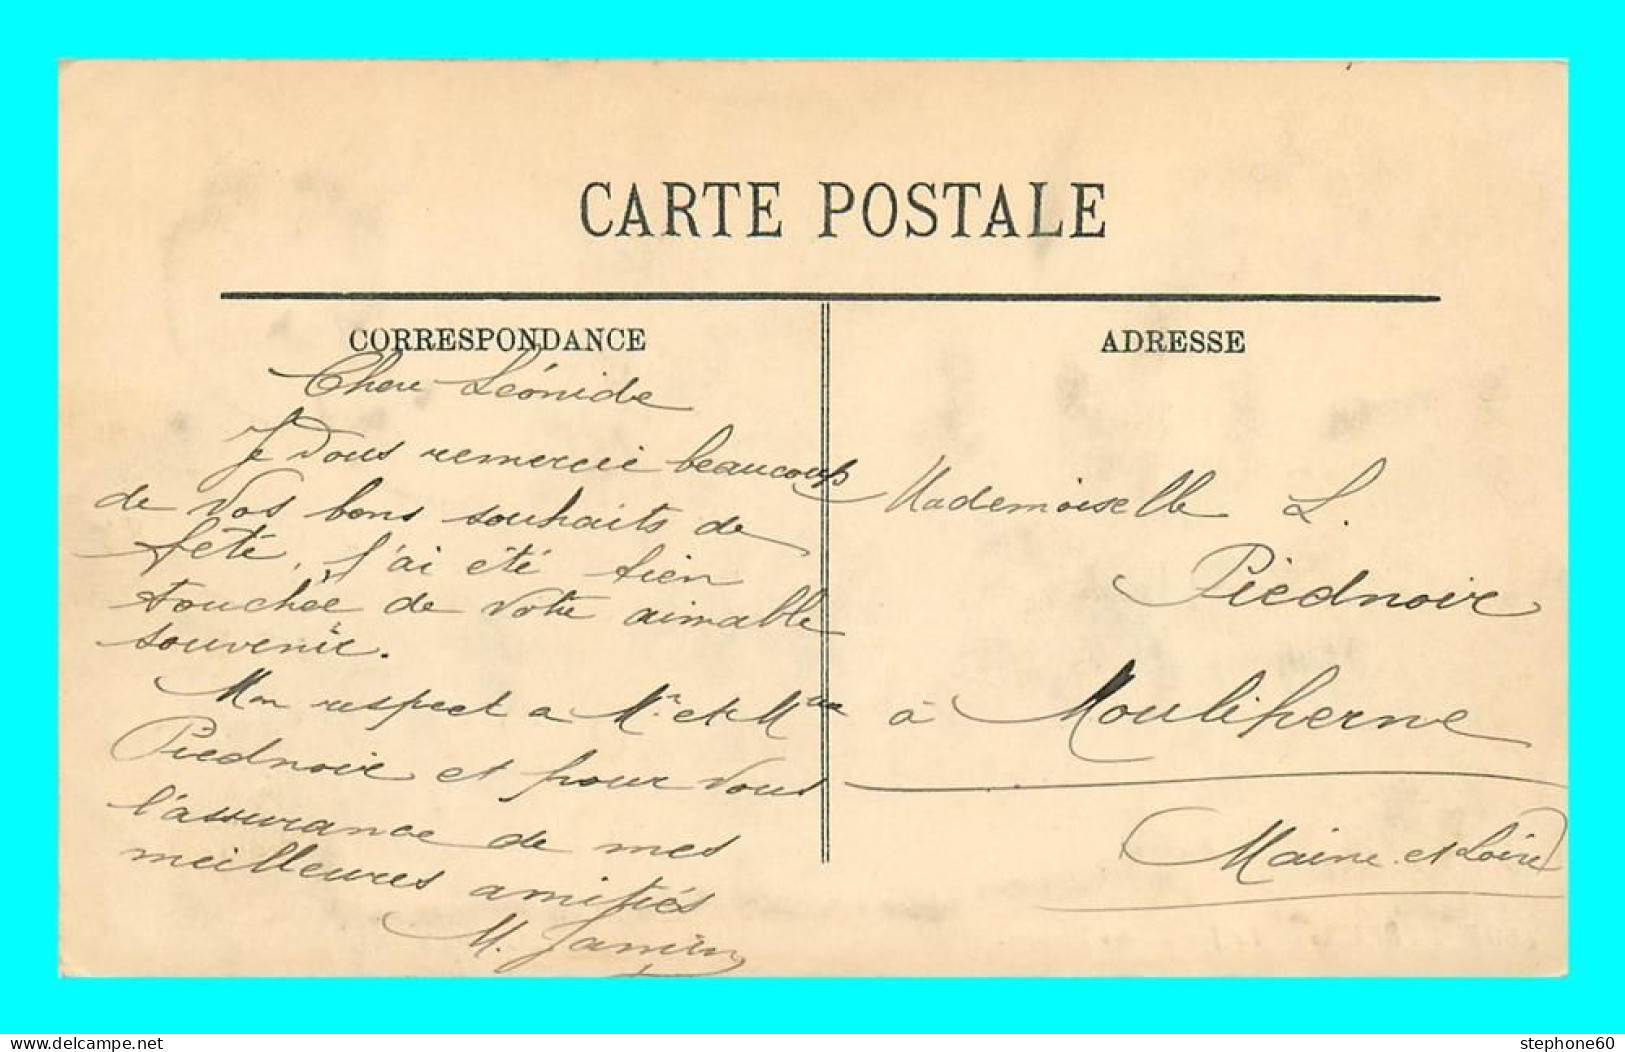 CARTE POSTALE
CORRESPONDANCE
Chère Léonide
Je Vous remercie beaucoup
de Vos bons souhaits de
fête, j'ai été bien
touchée de Votre aimable
souvenir.
Mon respect a Mr et Mme
Piednoir et pour Vous
l'assurance de mes
meilleures amitiés
M. Jamin
ADRESSE
Mademoiselle L.
Piédnoir
à Mouliherne
Maine et Loire
www.delcampe.net
stephone60